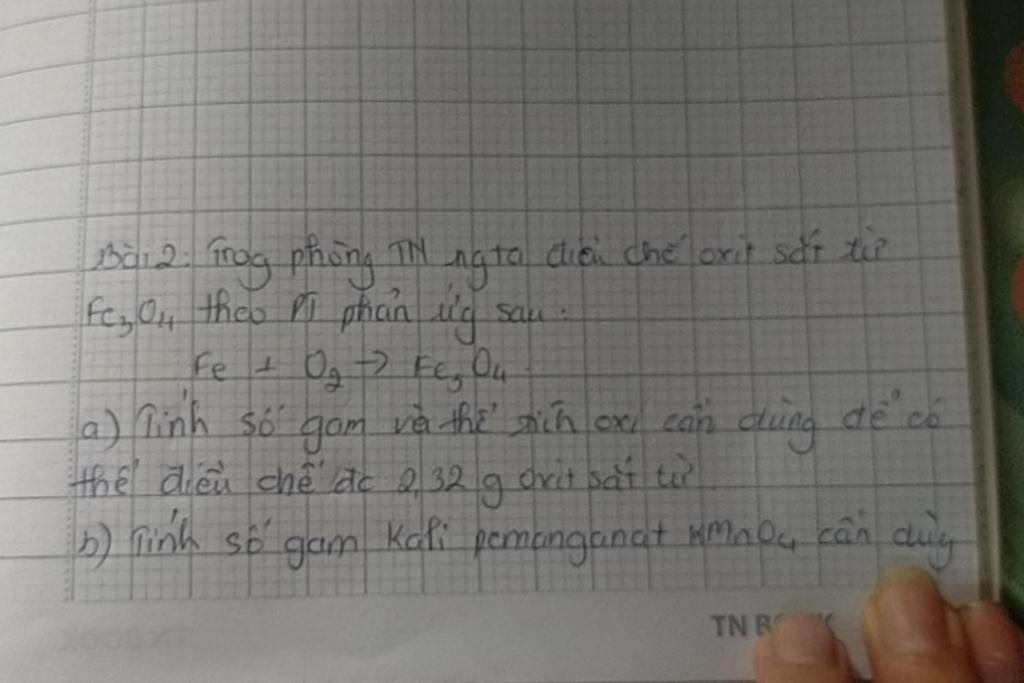 Bài 2: Trog phòng TN ngta điều chế oxit sắt từ
Fe3O4 theo PT phản ứg sau:
Fe + O2 → Fe3O4
a) Tính số gam và thể tích oxi cần dùng để có
thể điều chế đc 2,32 g oxit sắt từ
b) Tính số gam Kali pemanganat KMnO4 cần dùg
TN B